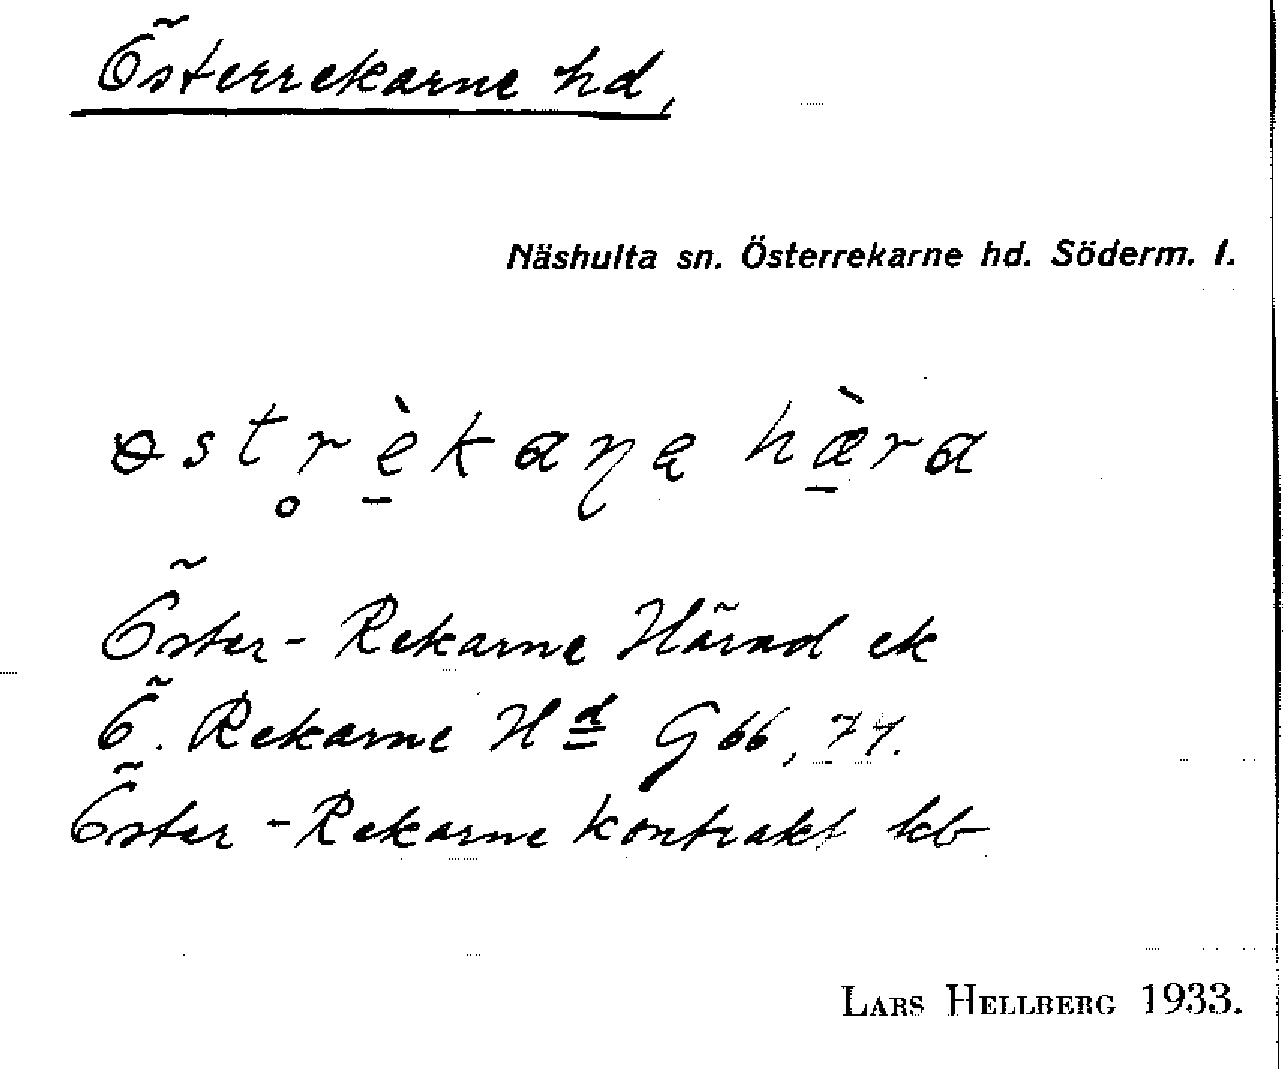 Österrekarne hd,
Näshulta sn. Österrekarne hd. Söderm. l.
Öster-Rekarne Härad ek
Ö. Rekarne Hd G 66, 74.
Öster-Rekarne kontrakt kb
LARS HELLBERG 1933.